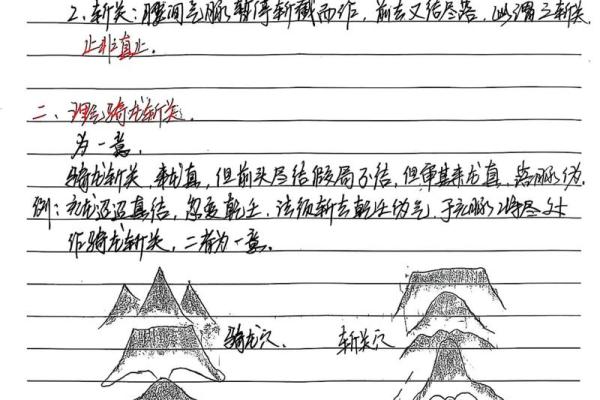 2、斩关：腰间气脉暂停斩截而作，前去又结尽落，此谓之斩关，
止非真止．
二、理气骑龙斩关．
为一意．
骑龙斩关，来龙真，但前头尽结假局不结，但审其来龙真，落脉伪．
例：亢龙迢迢真结，忽变乾壬，法须斩去乾壬伪气，于亢脉将尽处
作骑龙斩关，二者为一意．
骑龙穴． 斩关穴